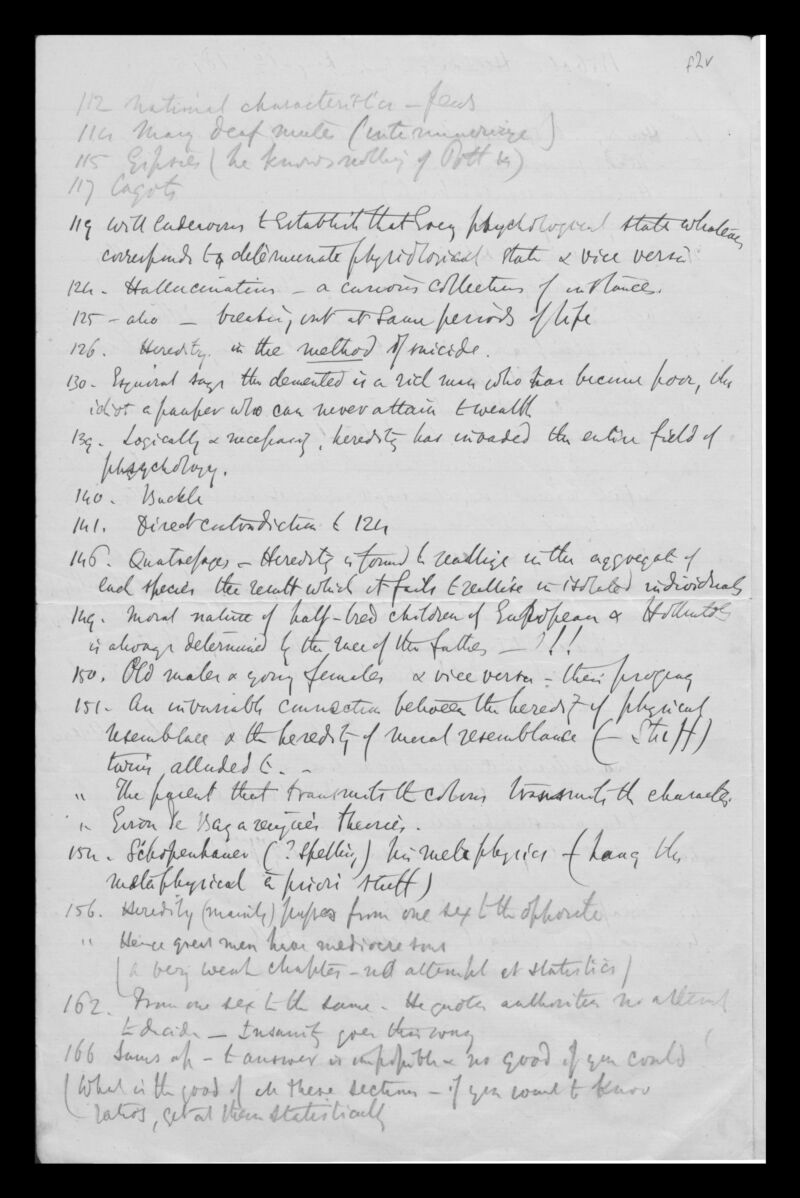 f2v
112 National characteristics –
114 Many deaf mutes (intermarriage)
115 Gipsies (he knows nothing of Pott &c)
117 Cagots
119 Will endeavour to establish that every psychological state whatever
corresponds to a determinate physiological state & vice versâ
124 - Hallucinations – a curious collection of instances.
125 - also – breaking out at same periods of life
126. Heredity in the method of suicide.
130 - Esquirol says the demented is a rich man who has become poor, the
idiot a pauper who can never attain to wealth
139. Logically & necessarily, heredity has invaded the entire field of
physychology.
140. Buckle
141. Direct contradiction to 124
146. Quatrefages – Heredity is found to realise in the aggregate of
each species the result which it fails to realise in isolated individuals
149. Moral nature of half-bred children of European & Hottentots
is always determined by the race of the father – ?!!
150. Old males & young females & vice versa – their progeny
151 - An invariable connection between the heredity of physical
resemblance & the heredity of moral resemblance (– Stuff)
twins alluded to. –
" The parent that transmits the colour transmits the character.
" Giron de Buzareingues theories.
154. Schopenhauer (? spelling) his metaphysics – (hang this
metaphysical à priori stuff)
156. Heredity (mainly) passes from one sex to the opposite
" Hence great men have mediocre sons
(a very weak chapter – no attempt at statistics)
162. From one sex to the same - He quotes authorities no attempt
to decide – Insanity goes this way
166 Sums up – to answer is impossible & no good if you could
(What is the good of all these sections – if you want to know
ratios, get at them statistically